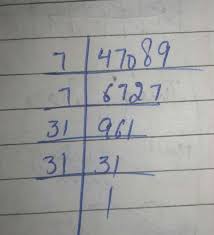 7 47089
7 6727
31 961
31 31
1